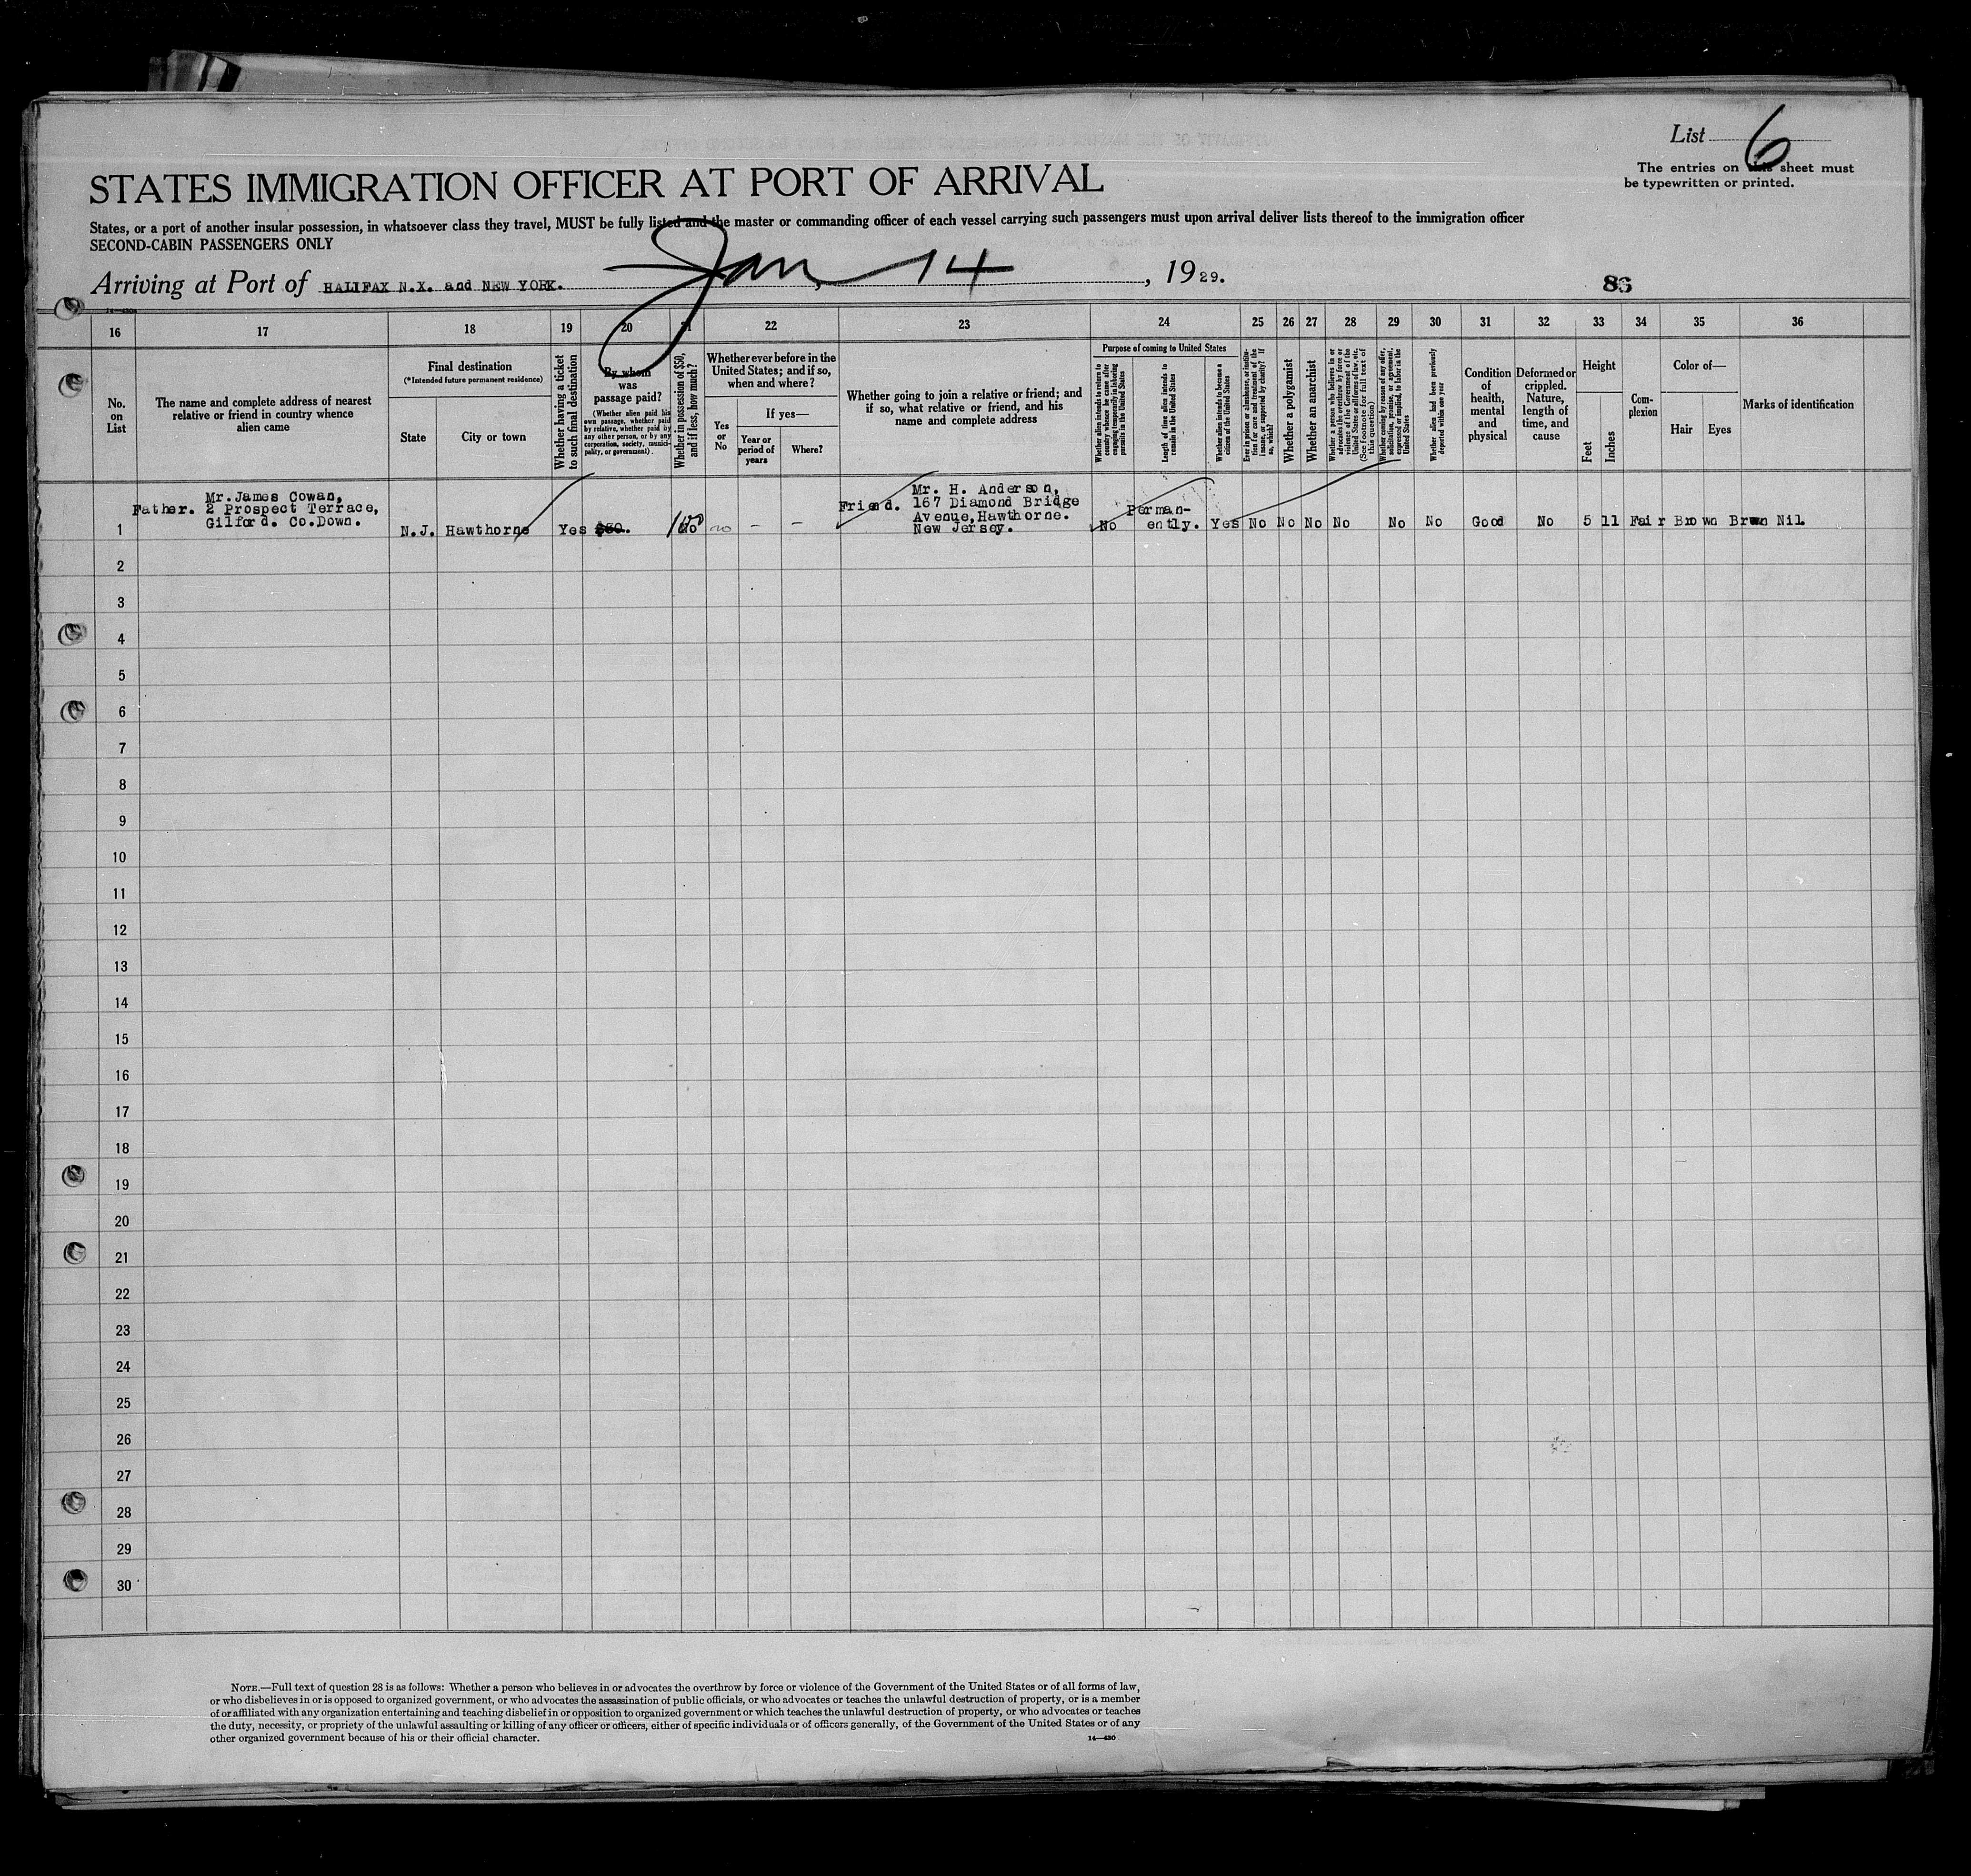 List 6
The entries on this sheet must
be typewritten or printed.
STATES IMMIGRATION OFFICER AT PORT OF ARRIVAL
States, or a port of another insular possession, in whatsoever class they travel, MUST be fully listed and the master or commanding officer of each vessel carrying such passengers must upon arrival deliver lists thereof to the immigration officer
SECOND-CABIN PASSENGERS ONLY
Arriving at Port of HALIFAX N.X. and NEW YORK. Jan 14, 1929.
86
16 17 18 19 20 21 22 23 24 25 26 27 28 29 30 31 32 33 34 35 36
No.
on
List
The name and complete address of nearest
relative or friend in country whence
alien came
Final destination
(*Intended future permanent residence)
State
City or town
Whether having a ticket
to such final destination
By whom
was
passage paid?
(Whether alien paid his
own passage, whether paid
by relative, whether paid by
any other person, or by any
corporation, society, munici-
pality, or government).
Whether in possession of $50,
and if less, how much?
Whether ever before in the
United States; and if so,
when and where?
Yes
or
No
If yes—
Year or
period of
years
Where?
Whether going to join a relative or friend; and
if so, what relative or friend, and his
name and complete address
Purpose of coming to United States
Whether alien intends to return to
country whence he came after
engaging temporarily in laboring
pursuits in the United States
Length of time alien intends to
remain in the United States
Whether alien intends to become a
citizen of the United States
Ever in prison or almshouse, or institu-
tion for care and treatment of the
insane, or supported by charity? If
so, which?
Whether a polygamist
Whether an anarchist
Whether a person who believes in or
advocates the overthrow by force or
violence of the Government of the
United States or all forms of law, etc.
(See footnote for full text of
this question)
Whether coming by reason of any offer,
solicitation, promise, or agreement,
expressed or implied, to labor in the
United States
Whether alien had been previously
deported within one year
Condition
of
health,
mental
and
physical
Deformed or
crippled.
Nature,
length of
time, and
cause
Height
Feet
Inches
Com-
plexion
Color of—
Hair
Eyes
Marks of identification
Father. Mr. James Cowan,
2 Prospect Terrace,
Gilford. Co.Down.
Friend. Mr. H. Anderson,
167 Diamond Bridge
Avenue,Hawthorne.
New Jersey.
1 N.J. Hawthorne Yes $50. no – – No Perman-
ently. Yes No No No No No No Good No 5 11 Fair Brown Brown Nil.
2
3
4
5
6
7
8
9
10
11
12
13
14
15
16
17
18
19
20
21
22
23
24
25
26
27
28
29
30
NOTE.—Full text of question 28 is as follows: Whether a person who believes in or advocates the overthrow by force or violence of the Government of the United States or of all forms of law,
or who disbelieves in or is opposed to organized government, or who advocates the assassination of public officials, or who advocates or teaches the unlawful destruction of property, or is a member
of or affiliated with any organization entertaining and teaching disbelief in or opposition to organized government or which teaches the unlawful destruction of property, or who advocates or teaches
the duty, necessity, or propriety of the unlawful assaulting or killing of any officer or officers, either of specific individuals or of officers generally, of the Government of the United States or of any
other organized government because of his or their official character.
14—430